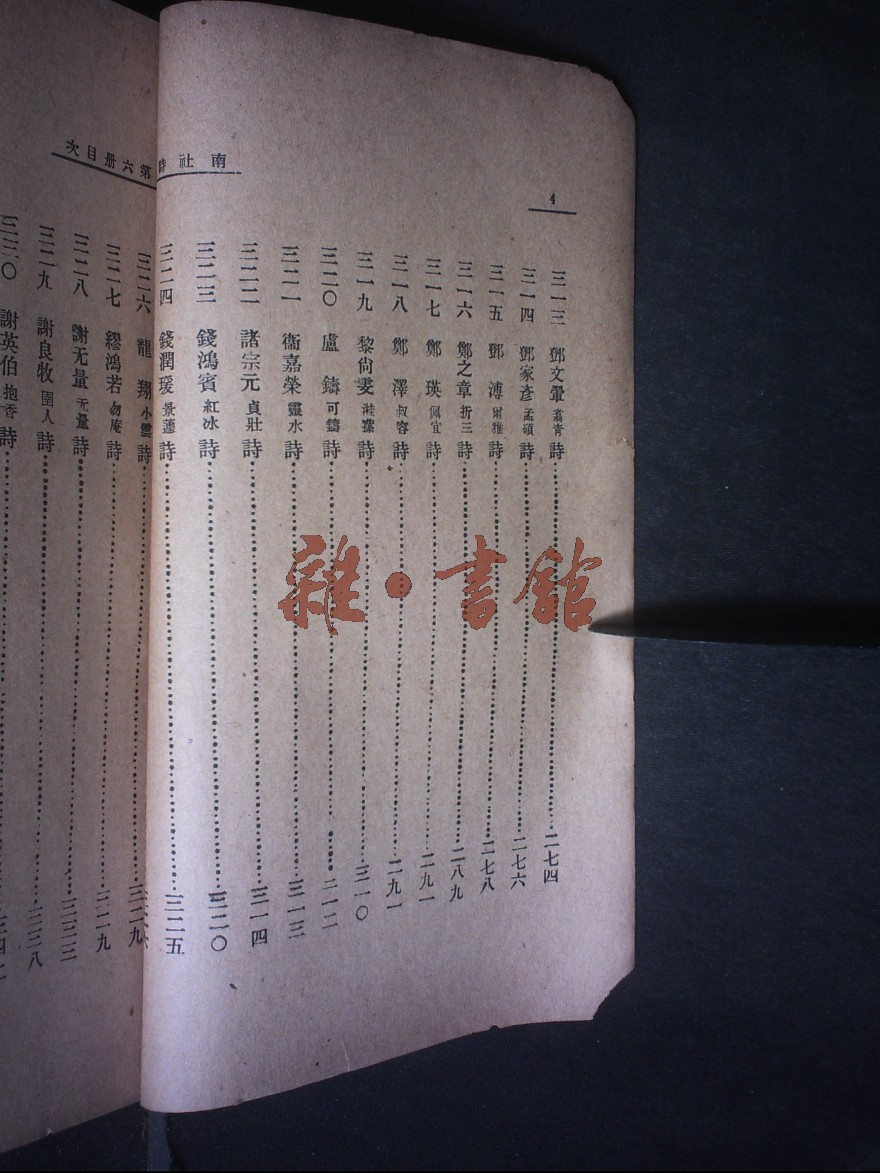 南社詩
第六册目次
4
三一三 鄧文翬 詩 二七四
三一四 鄧家彥 孟碩 詩 二七六
三一五 鄧溥 爾雅 詩 二七八
三一六 鄭之章 折三 詩 二八九
三一七 鄭瑛 佩宜 詩 二九一
三一八 鄭澤 叔容 詩 二九一
三一九 黎尙雯 詩 三一〇
三二〇 盧鑄 可鑄 詩
三二一 衞嘉榮 靈水 詩 三一三
三二二 諸宗元 貞壯 詩 三一四
三二三 錢鴻賓 紅冰 詩 三二〇
三二四 錢潤瑗 景蘧 詩 三二五
三二六 龍翔 小雲 詩
三二七 繆鴻若 勿庵 詩 三二九
三二八 謝无量 无量 詩 三三三
三二九 謝良牧 詩 三三八
三三〇 謝英伯 抱香 詩
雜·書館